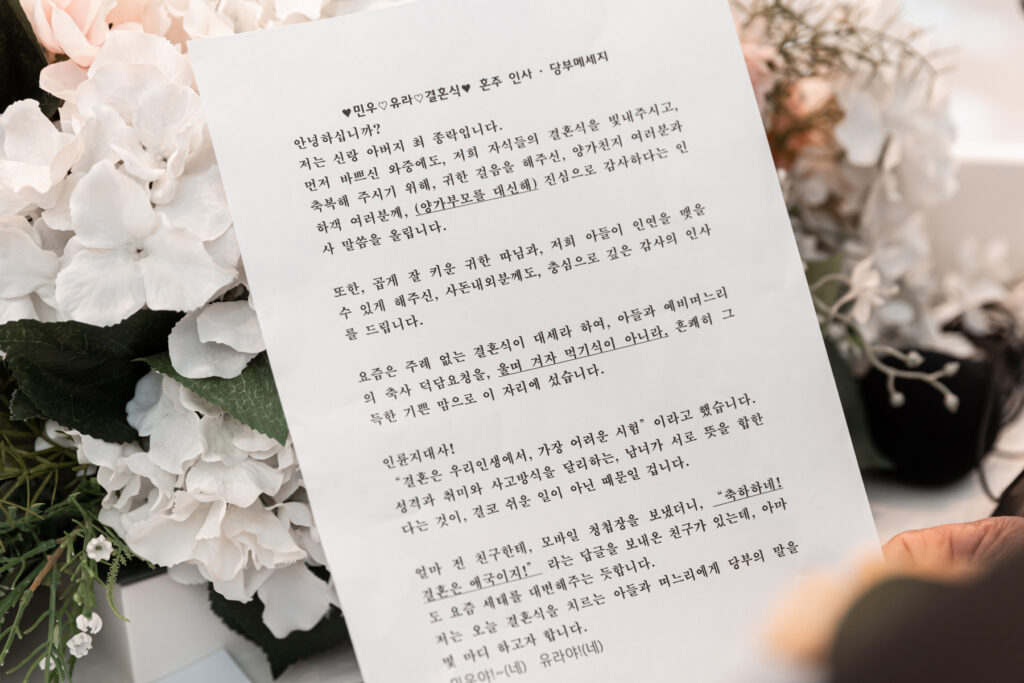 ♥민우♡유라♡결혼식♥ 혼주 인사 · 당부메세지
안녕하십니까?
저는 신랑 아버지 최 종락입니다.
먼저 바쁘신 와중에도, 저희 자식들의 결혼식을 빛내주시고,
축복해 주시기 위해, 귀한 걸음을 해주신, 양가친지 여러분과
하객 여러분께, (양가부모를 대신해) 진심으로 감사하다는 인
사 말씀을 올립니다.
또한, 곱게 잘 키운 귀한 따님과, 저희 아들이 인연을 맺을
수 있게 해주신, 사돈내외분께도, 충심으로 깊은 감사의 인사
를 드립니다.
요즘은 주례 없는 결혼식이 대세라 하여, 아들과 예비며느리
의 축사 덕담요청을, 울며 겨자 먹기식이 아니라, 흔쾌히 그
득한 기쁜 맘으로 이 자리에 섰습니다.
인륜지대사!
“결혼은 우리인생에서, 가장 어려운 시험” 이라고 했습니다.
성격과 취미와 사고방식을 달리하는, 남녀가 서로 뜻을 합한
다는 것이, 결코 쉬운 일이 아닌 때문일 겁니다.
얼마 전 친구한데, 모바일 청첩장을 보냈더니, “축하하네!
결혼은 애국이지!” 라는 답글을 보내온 친구가 있는데, 아마
도 요즘 세태를 대변해주는 듯합니다.
저는 오늘 결혼식을 치르는 아들과 며느리에게 당부의 말을
몇 마디 하고자 합니다.
민우야!~(네) 유라야!(네)